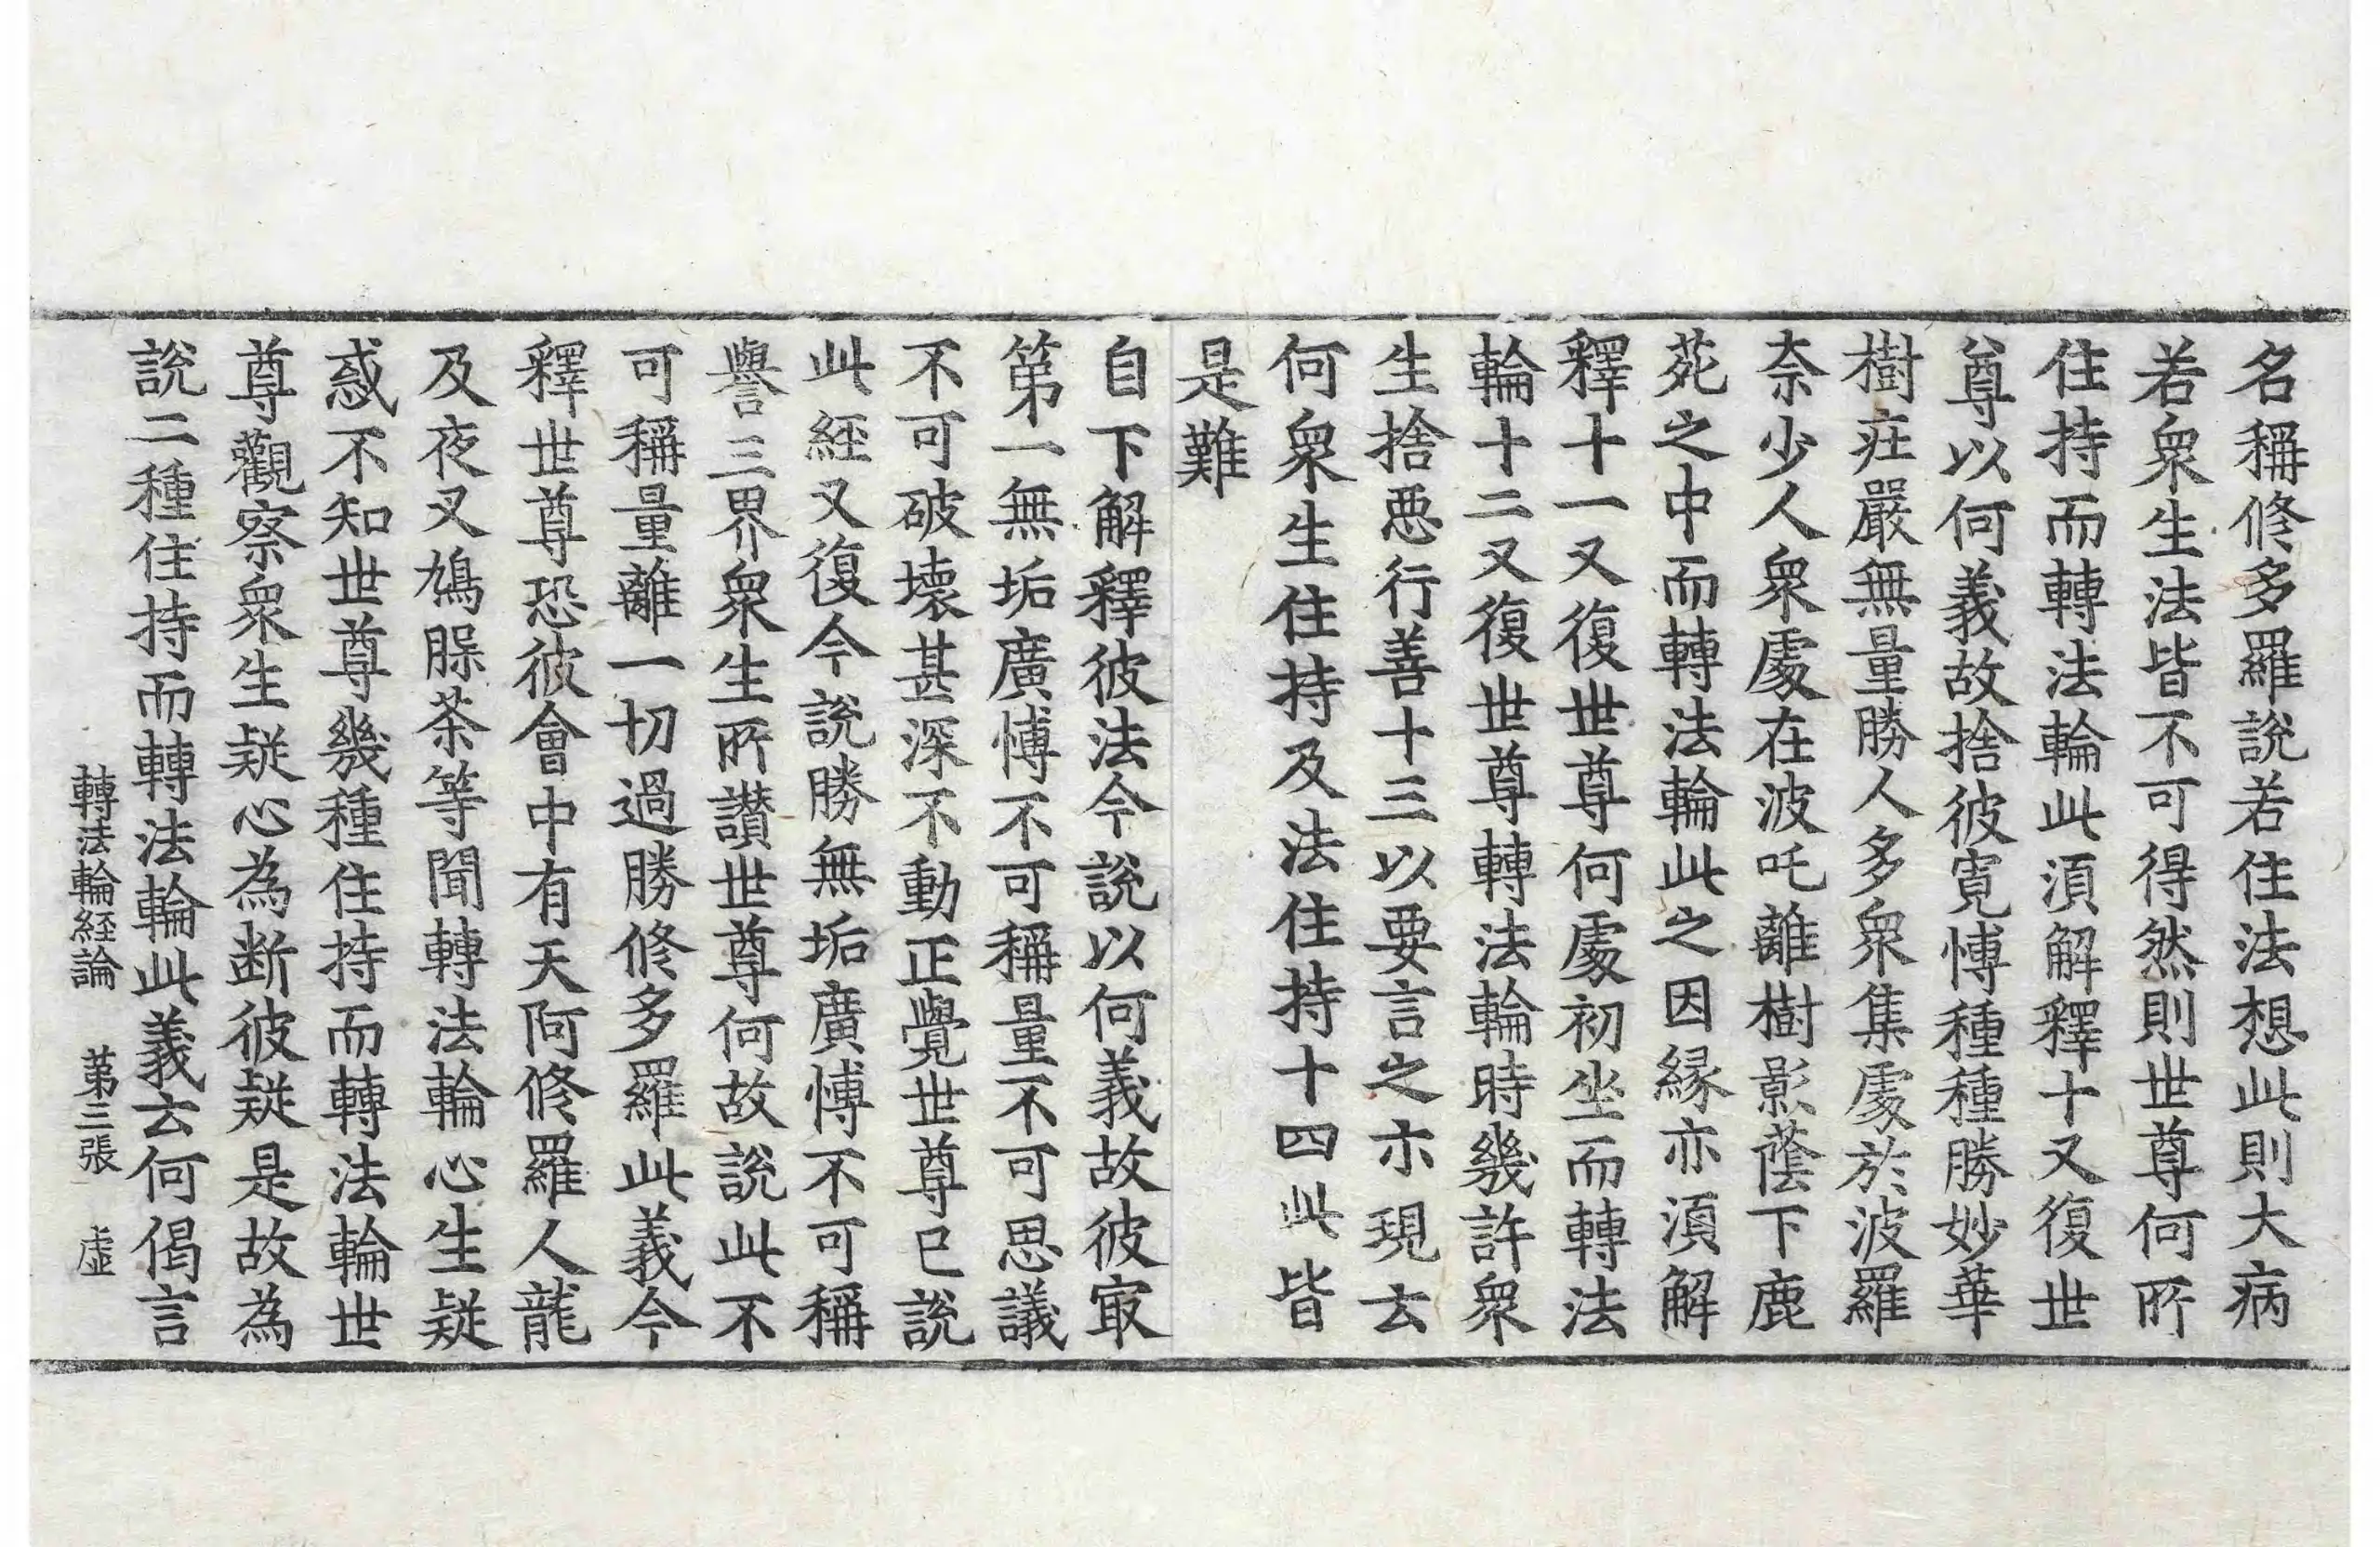 名稱修多羅說若住法想此則大病
若衆生法皆不可得然則世尊何所
住持而轉法輪此湏解釋十又復世
尊以何義故捨彼寛愽種種勝妙華
樹莊嚴無量勝人多衆集處於波羅
奈少人衆處在波吒離樹影蔭下鹿
菀之中而轉法輪此之因縁亦湏解
釋十一又復世尊何處初坐而轉法
輪十二又復世尊轉法輪時幾許衆
生捨悪行善十三以要言之亦現去
何衆生住持及法住持十四此皆
是難
自下解釋彼法今說以何義故彼㝡
第一無垢廣愽不可稱量不可思議
不可破壞甚深不動正覺世尊已說
此経又復今說勝無垢廣愽不可稱
譽三界衆生所讃世尊何故說此不
可稱量離一切過勝修多羅此義今
釋世尊恐彼會中有天阿修羅人龍
及夜叉鳩脲茶等聞轉法輪心生疑
惑不知世尊幾種住持而轉法輪世
尊觀察衆生疑心為断彼疑是故為
說二種住持而轉法輪此義云何偈言
轉法輪経論　第三張　虛